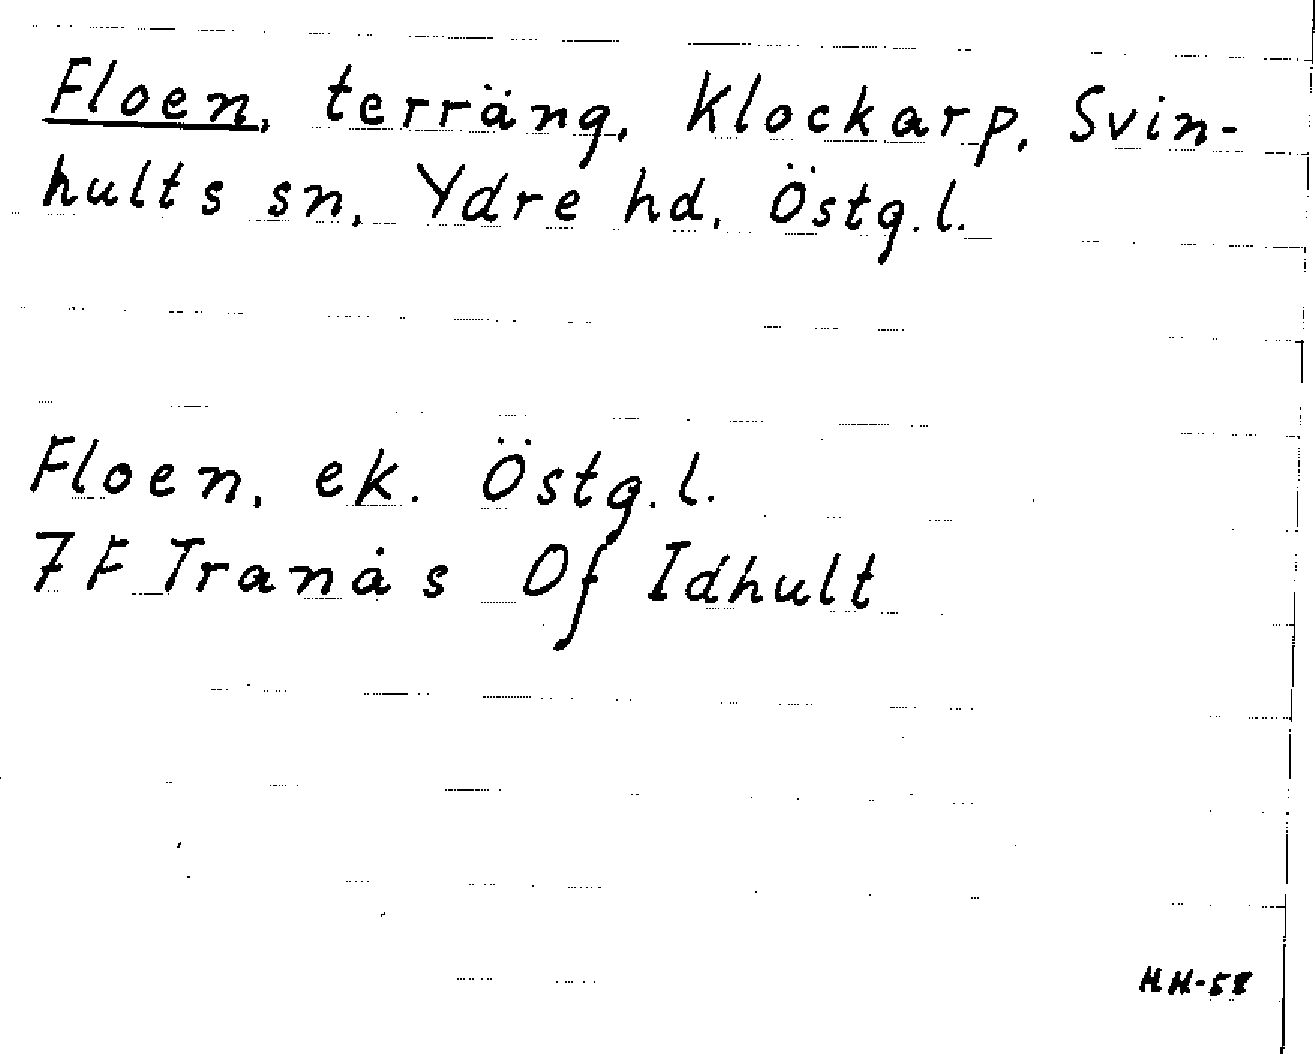 Floen, terräng, Klockarp, Svin-
hults sn, Ydre hd, Östg.l.
Floen, ek. Östg.l.
7F Tranås Of Idhult
HH-58